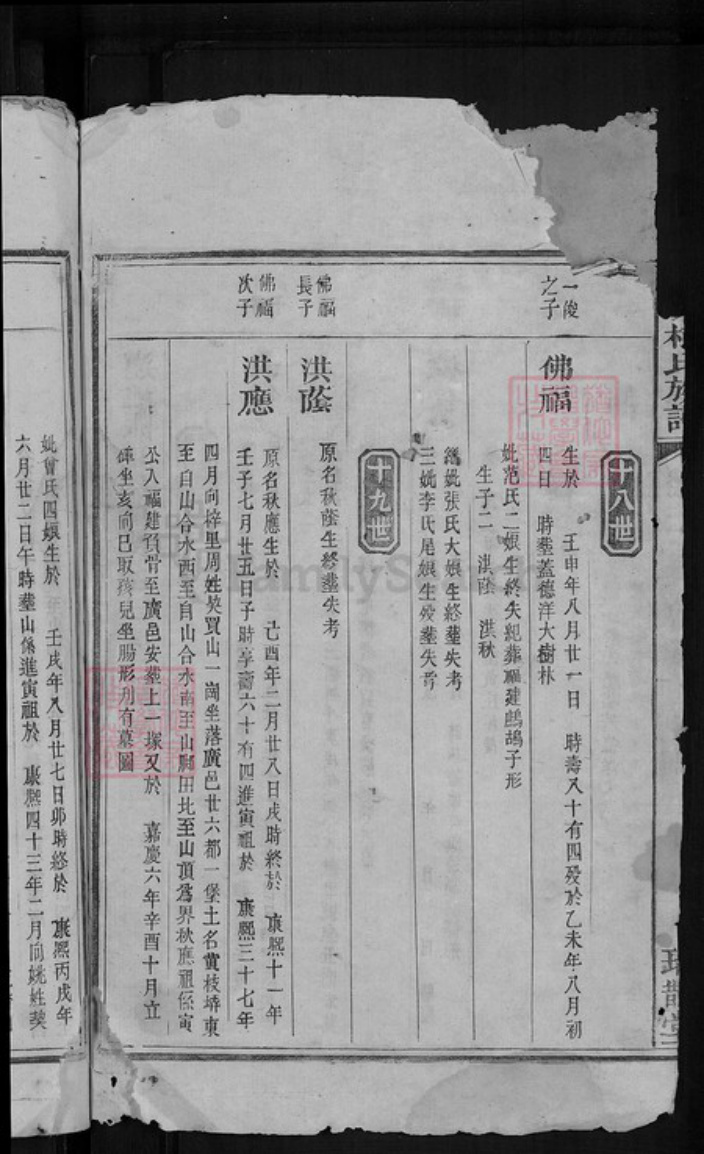 氏族
十八世
一俊之子
佛福
生於 壬申年八月廿一日 時壽八十有四殁於乙未年八月初
四日 時塟蓋德洋大樹林
妣范氏二娘生終失紀葬福建鷓鴣子形
生子二 淇蔭 淇秋
繼妣張氏大娘生終塟失考
三妣李氏尾娘生殁塟失考
十九世
佛福長子
洪蔭
原名秋蔭生終塟失考
佛福次子
洪應
原名秋應生於 己酉年二月廿八日戌時終於 康熙十一年
壬子七月廿五日子時享壽六十有四進寅祖於 康熙三十七年
四月向梓里周姓契買山一崗坐落廣邑廿六都一堡土名黃枝塆東
至自山合水西至自山合水南至山脚田北至山頂爲界秋應祖係寅
公入福建負骨至廣邑安塟上一塚又於 嘉慶六年辛酉十月立
碑坐亥向巳取孩兒坐腸形另有墓圖
妣曾氏四娘生於 壬戌年八月廿七日卯時終於 康熙丙戌年
六月廿二日午時塟山係進寅祖於 康熙四十三年二月向姚姓契
FamilySearch